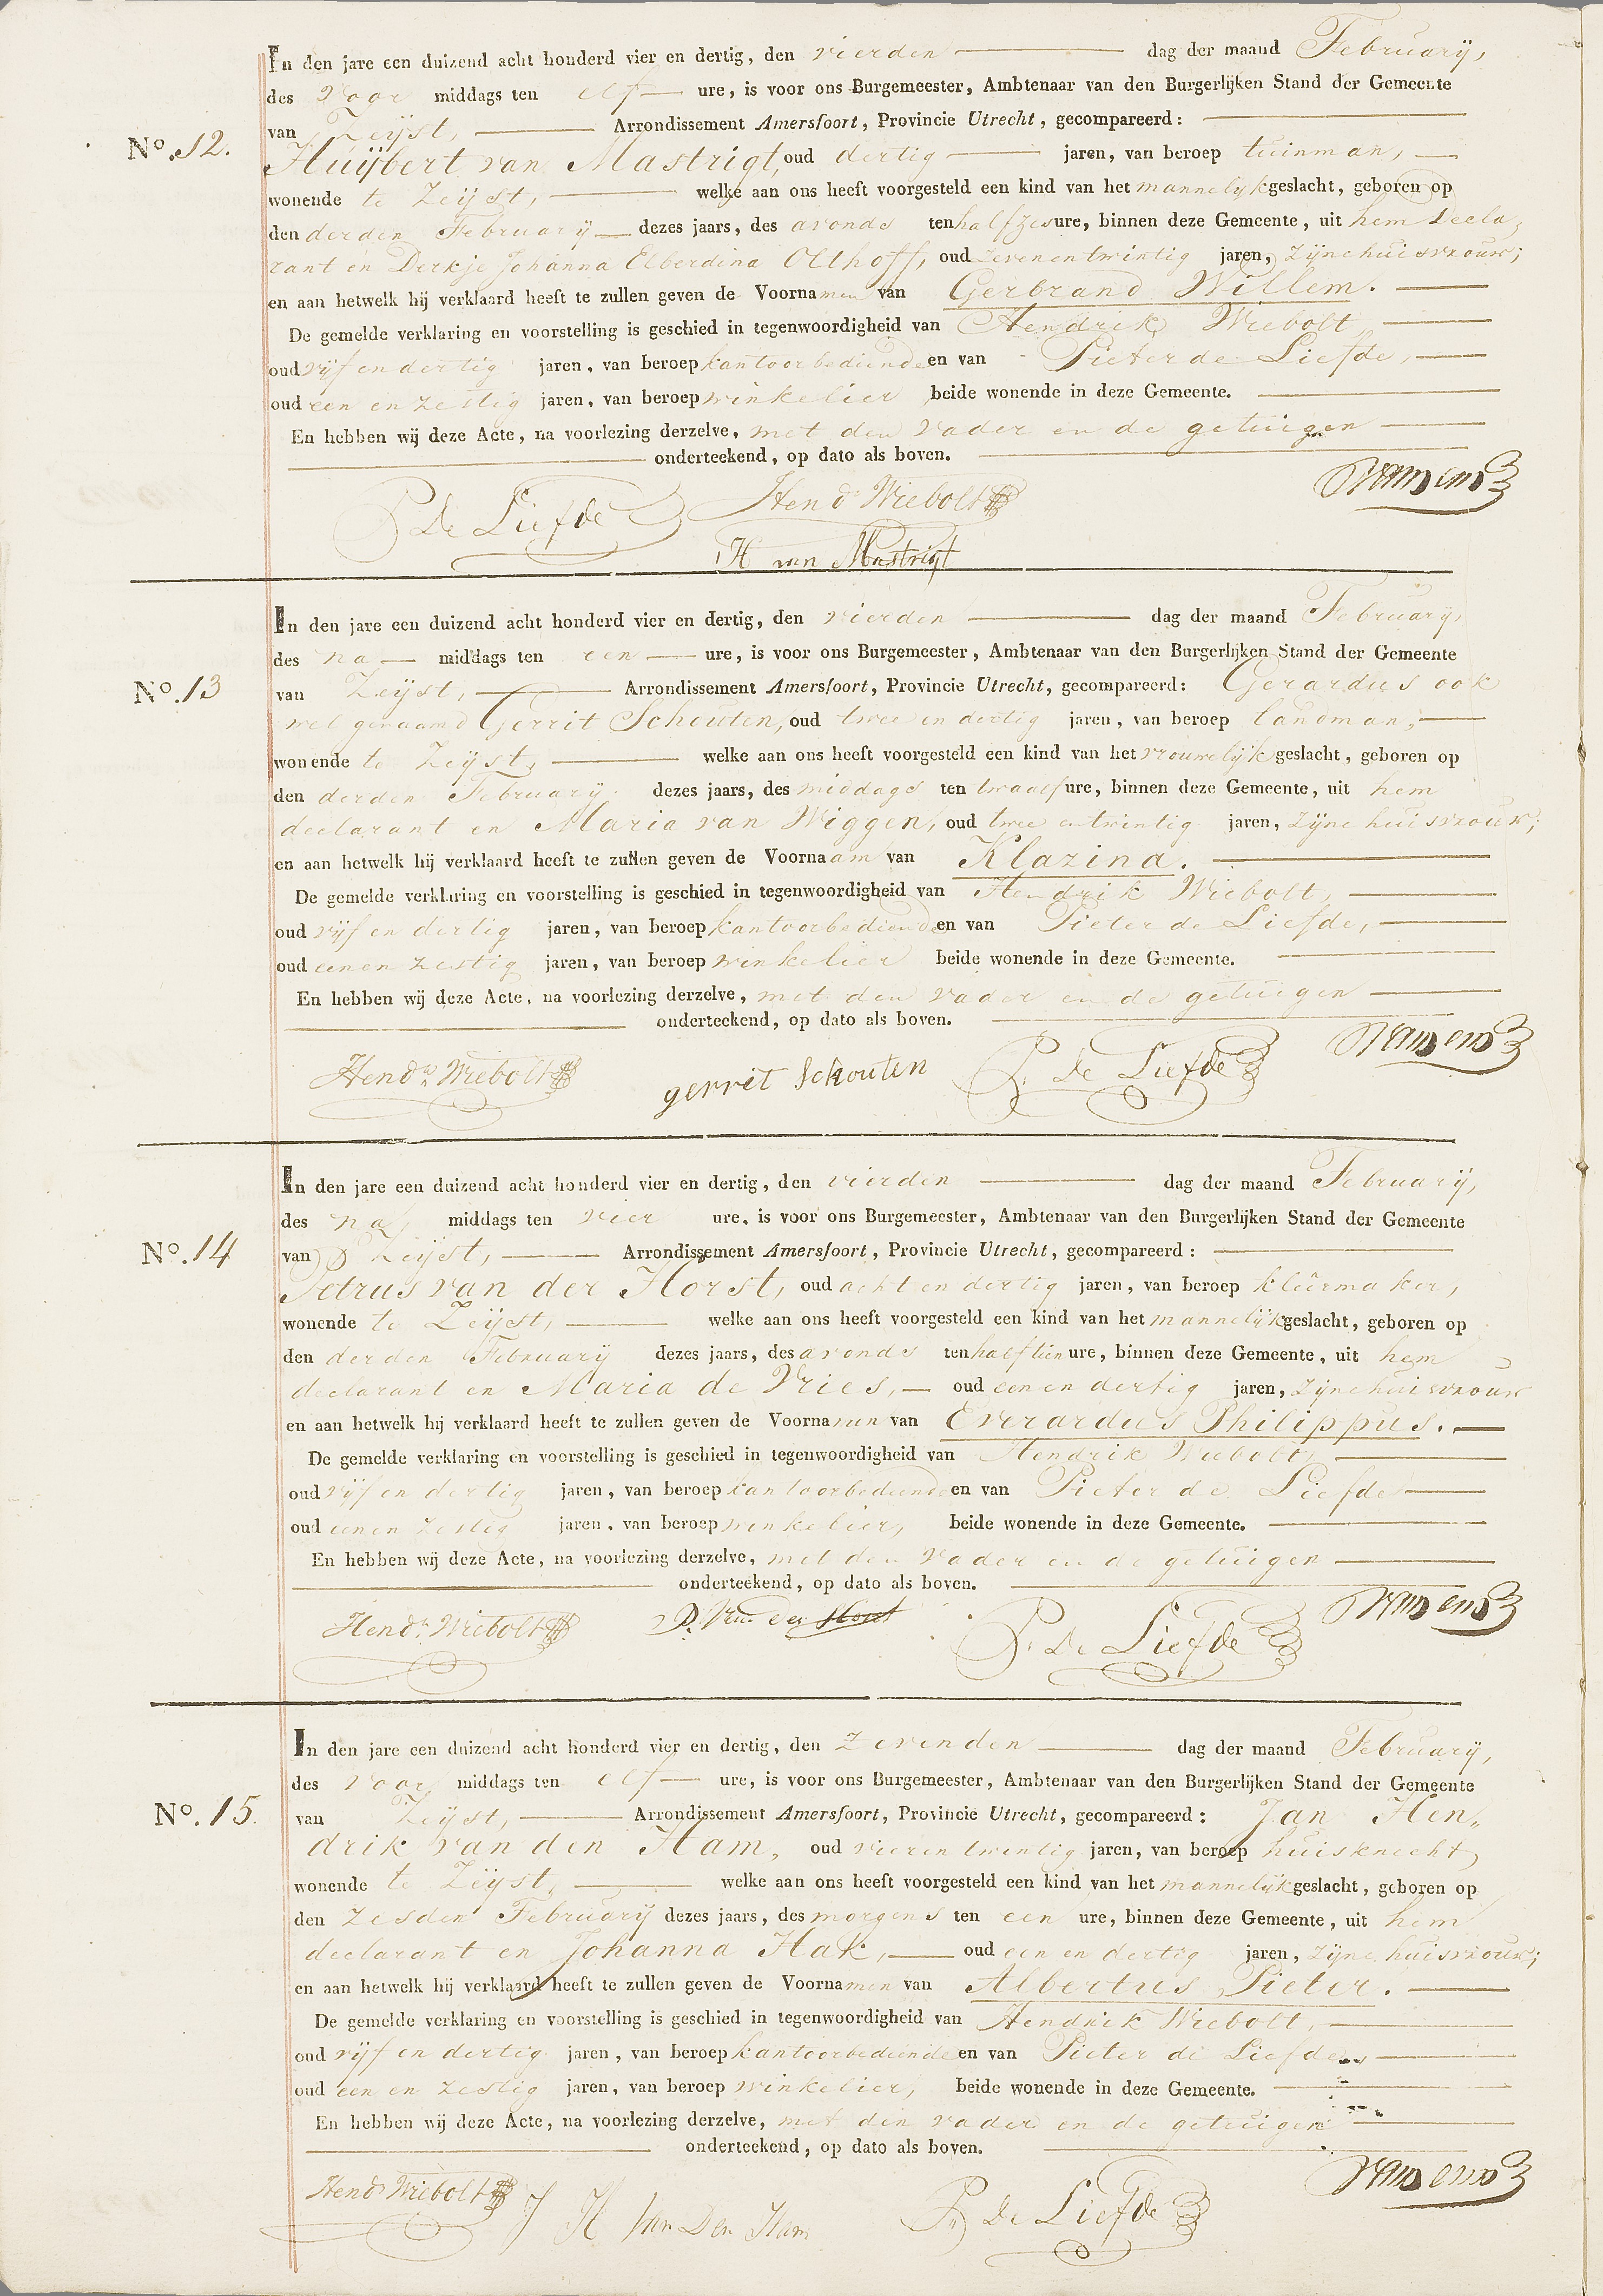 In den jare een duizend acht honderd vier en dertig, den vierden dag der maand February,
des voor middags ten elf ure, is voor ons Burgemeester, Ambtenaar van den Burgerlijken Stand der Gemeente
No. 12. van Zeijst, Arrondissement Amersfoort, Provincie Utrecht, gecompareerd:
Huijbert van Mastrigt, oud dertig jaren, van beroep tuinman,
wonende te Zeijst, welke aan ons heeft voorgesteld een kind van het mannelijk geslacht, geboren op
den derden February dezes jaars, des avonds ten half zes ure, binnen deze Gemeente, uit hem decla,
rant en Derkje Johanna Elberdina Olthoff, oud zevenentwintig jaren, zijne huisvrouw;
en aan hetwelk hij verklaard heeft te zullen geven de Voornamen van Gerbrand Willem.
De gemelde verklaring en voorstelling is geschied in tegenwoordigheid van Hendrik Wiebolt,
oud vijf en dertig jaren, van beroep kantoorbediende en van Pieter de Liefde,
oud een en zestig jaren, van beroep winkelier beide wonende in deze Gemeente.
En hebben wij deze Acte, na voorlezing derzelve, met den vader en de getuigen
onderteekend, op dato als boven.
P. De Liefde Hendk Wiebolt
H van Mastrigt
In den jare een duizend acht honderd vier en dertig, den vierden dag der maand February,
des na middags ten een ure, is voor ons Burgemeester, Ambtenaar van den Burgerlijken Stand der Gemeente
No. 13 van Zeijst, Arrondissement Amersfoort, Provincie Utrecht, gecompareerd: Gerardus ook
wel genaamd Gerrit Schouten, oud twee en dertig jaren, van beroep landman,
wonende te Zeijst, welke aan ons heeft voorgesteld een kind van het vrouwelijk geslacht, geboren op
den derden February dezes jaars, des middags ten twaalf ure, binnen deze Gemeente, uit hem
declarant en Maria van Wiggen, oud twee entwintig jaren, zijne huisvrouw;
en aan hetwelk hij verklaard heeft te zullen geven de Voornaam van Klazina.
De gemelde verklaring en voorstelling is geschied in tegenwoordigheid van Hendrik Wiebolt,
oud vijf en dertig jaren, van beroep kantoorbediende en van Pieter de Liefde,
oud een en zestig jaren, van beroep winkelier beide wonende in deze Gemeente.
En hebben wij deze Acte, na voorlezing derzelve, met den vader en de getuigen
onderteekend, op dato als boven.
Hendk Wiebolt gerrit Schouten P. de Liefde
In den jare een duizend acht honderd vier en dertig, den vierden dag der maand February,
des na middags ten vier ure, is voor ons Burgemeester, Ambtenaar van den Burgerlijken Stand der Gemeente
No. 14 van Zeijst, Arrondissement Amersfoort, Provincie Utrecht, gecompareerd:
Petrus van der Horst, oud acht en dertig jaren, van beroep kleêrmaker,
wonende te Zeijst, welke aan ons heeft voorgesteld een kind van het mannelijk geslacht, geboren op
den derden February dezes jaars, des avonds ten half tien ure, binnen deze Gemeente, uit hem
declarant en Maria de Vries, oud een en dertig jaren, zijne huisvrouw
en aan hetwelk hij verklaard heeft te zullen geven de Voornamen van Everardus Philippus.
De gemelde verklaring en voorstelling is geschied in tegenwoordigheid van Hendrik Wiebolt,
oud vijf en dertig jaren, van beroep kantoorbediende en van Pieter de Liefde
oud een en zestig jaren, van beroep winkelier, beide wonende in deze Gemeente.
En hebben wij deze Acte, na voorlezing derzelve, met den vader en de getuigen
onderteekend, op dato als boven.
Hendk Wiebolt P. Van der Horst P. De Liefde
In den jare een duizend acht honderd vier en dertig, den zevenden dag der maand February,
des voor middags ten elf ure, is voor ons Burgemeester, Ambtenaar van den Burgerlijken Stand der Gemeente
No. 15. van Zeijst, Arrondissement Amersfoort, Provincie Utrecht, gecompareerd: Jan Hen,
drik van den Ham, oud vier en twintig jaren, van beroep huisknecht,
wonende te Zeijst, welke aan ons heeft voorgesteld een kind van het mannelijk geslacht, geboren op
den zesden February dezes jaars, des morgens ten een ure, binnen deze Gemeente, uit hem
declarant en Johanna Hak, oud een en dertig jaren, zijne huisvrouw;
en aan hetwelk hij verklaard heeft te zullen geven de Voornamen van Albertus Pieter.
De gemelde verklaring en voorstelling is geschied in tegenwoordigheid van Hendrik Wiebolt,
oud vijf en dertig jaren, van beroep kantoorbediende en van Pieter de Liefde,
oud een en zestig jaren, van beroep winkelier, beide wonende in deze Gemeente.
En hebben wij deze Acte, na voorlezing derzelve, met den vader en de getuigen
onderteekend, op dato als boven.
Hendk Wiebolt J H Van Den Ham P. De Liefde